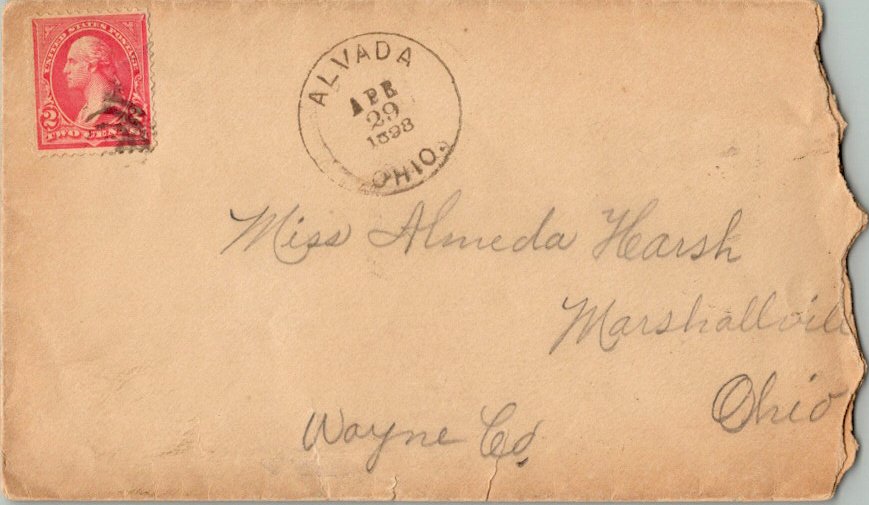 UNITED STATES POSTAGE
2 2
TWO CENTS
ALVADA
APR
29
1898
OHIO.
Miss Almeda Harsh
Marshallvill
Ohio
Wayne Co.